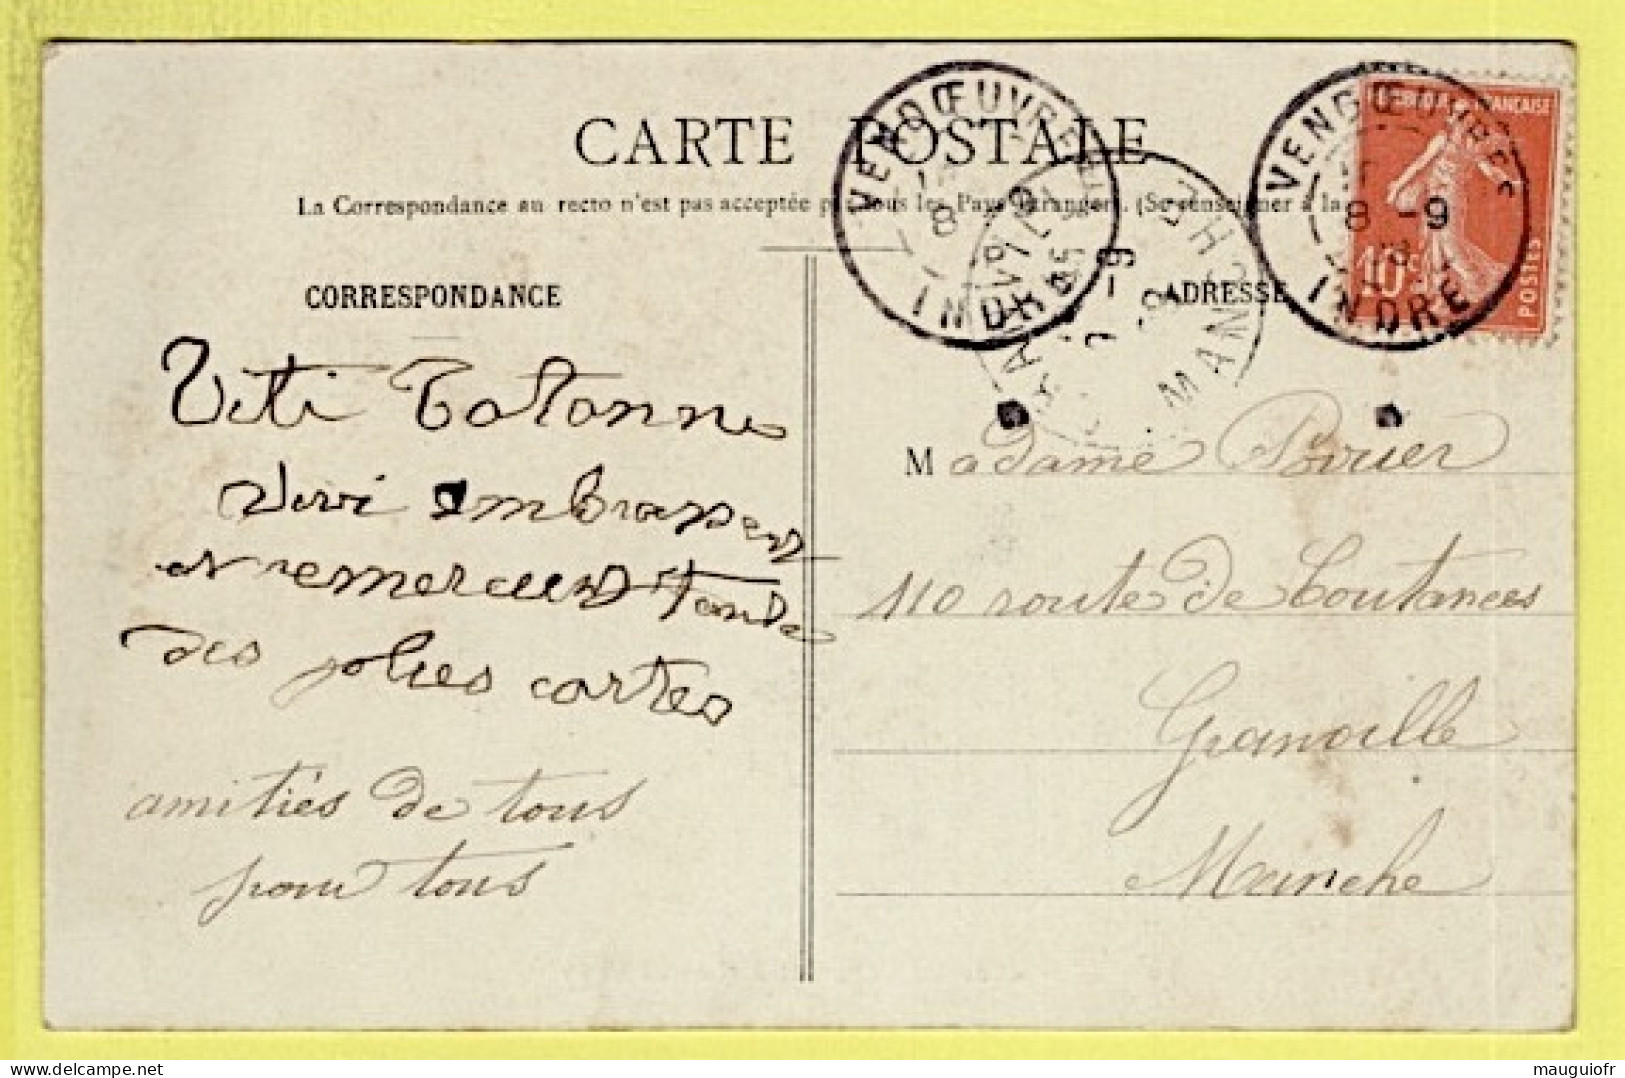 CARTE POSTALE
La Correspondance au recto n'est pas acceptée par tous les Pays étrangers. (Se renseigner à la
VENDŒUVRES
8
INDRE
VENDŒUVRES
8 -9
INDRE
RÉPUBLIQUE FRANÇAISE
10c
POSTES
GRANVILLE
MANCHE
-9
CORRESPONDANCE
ADRESSE
Titi Totonne
Vivi embrassent
et remercient Tante
des jolies cartes
amitiés de tous
pour tous
Madame Poirier
110 route de Coutances
Granville
Manche
delcampe.net
mauguiofr